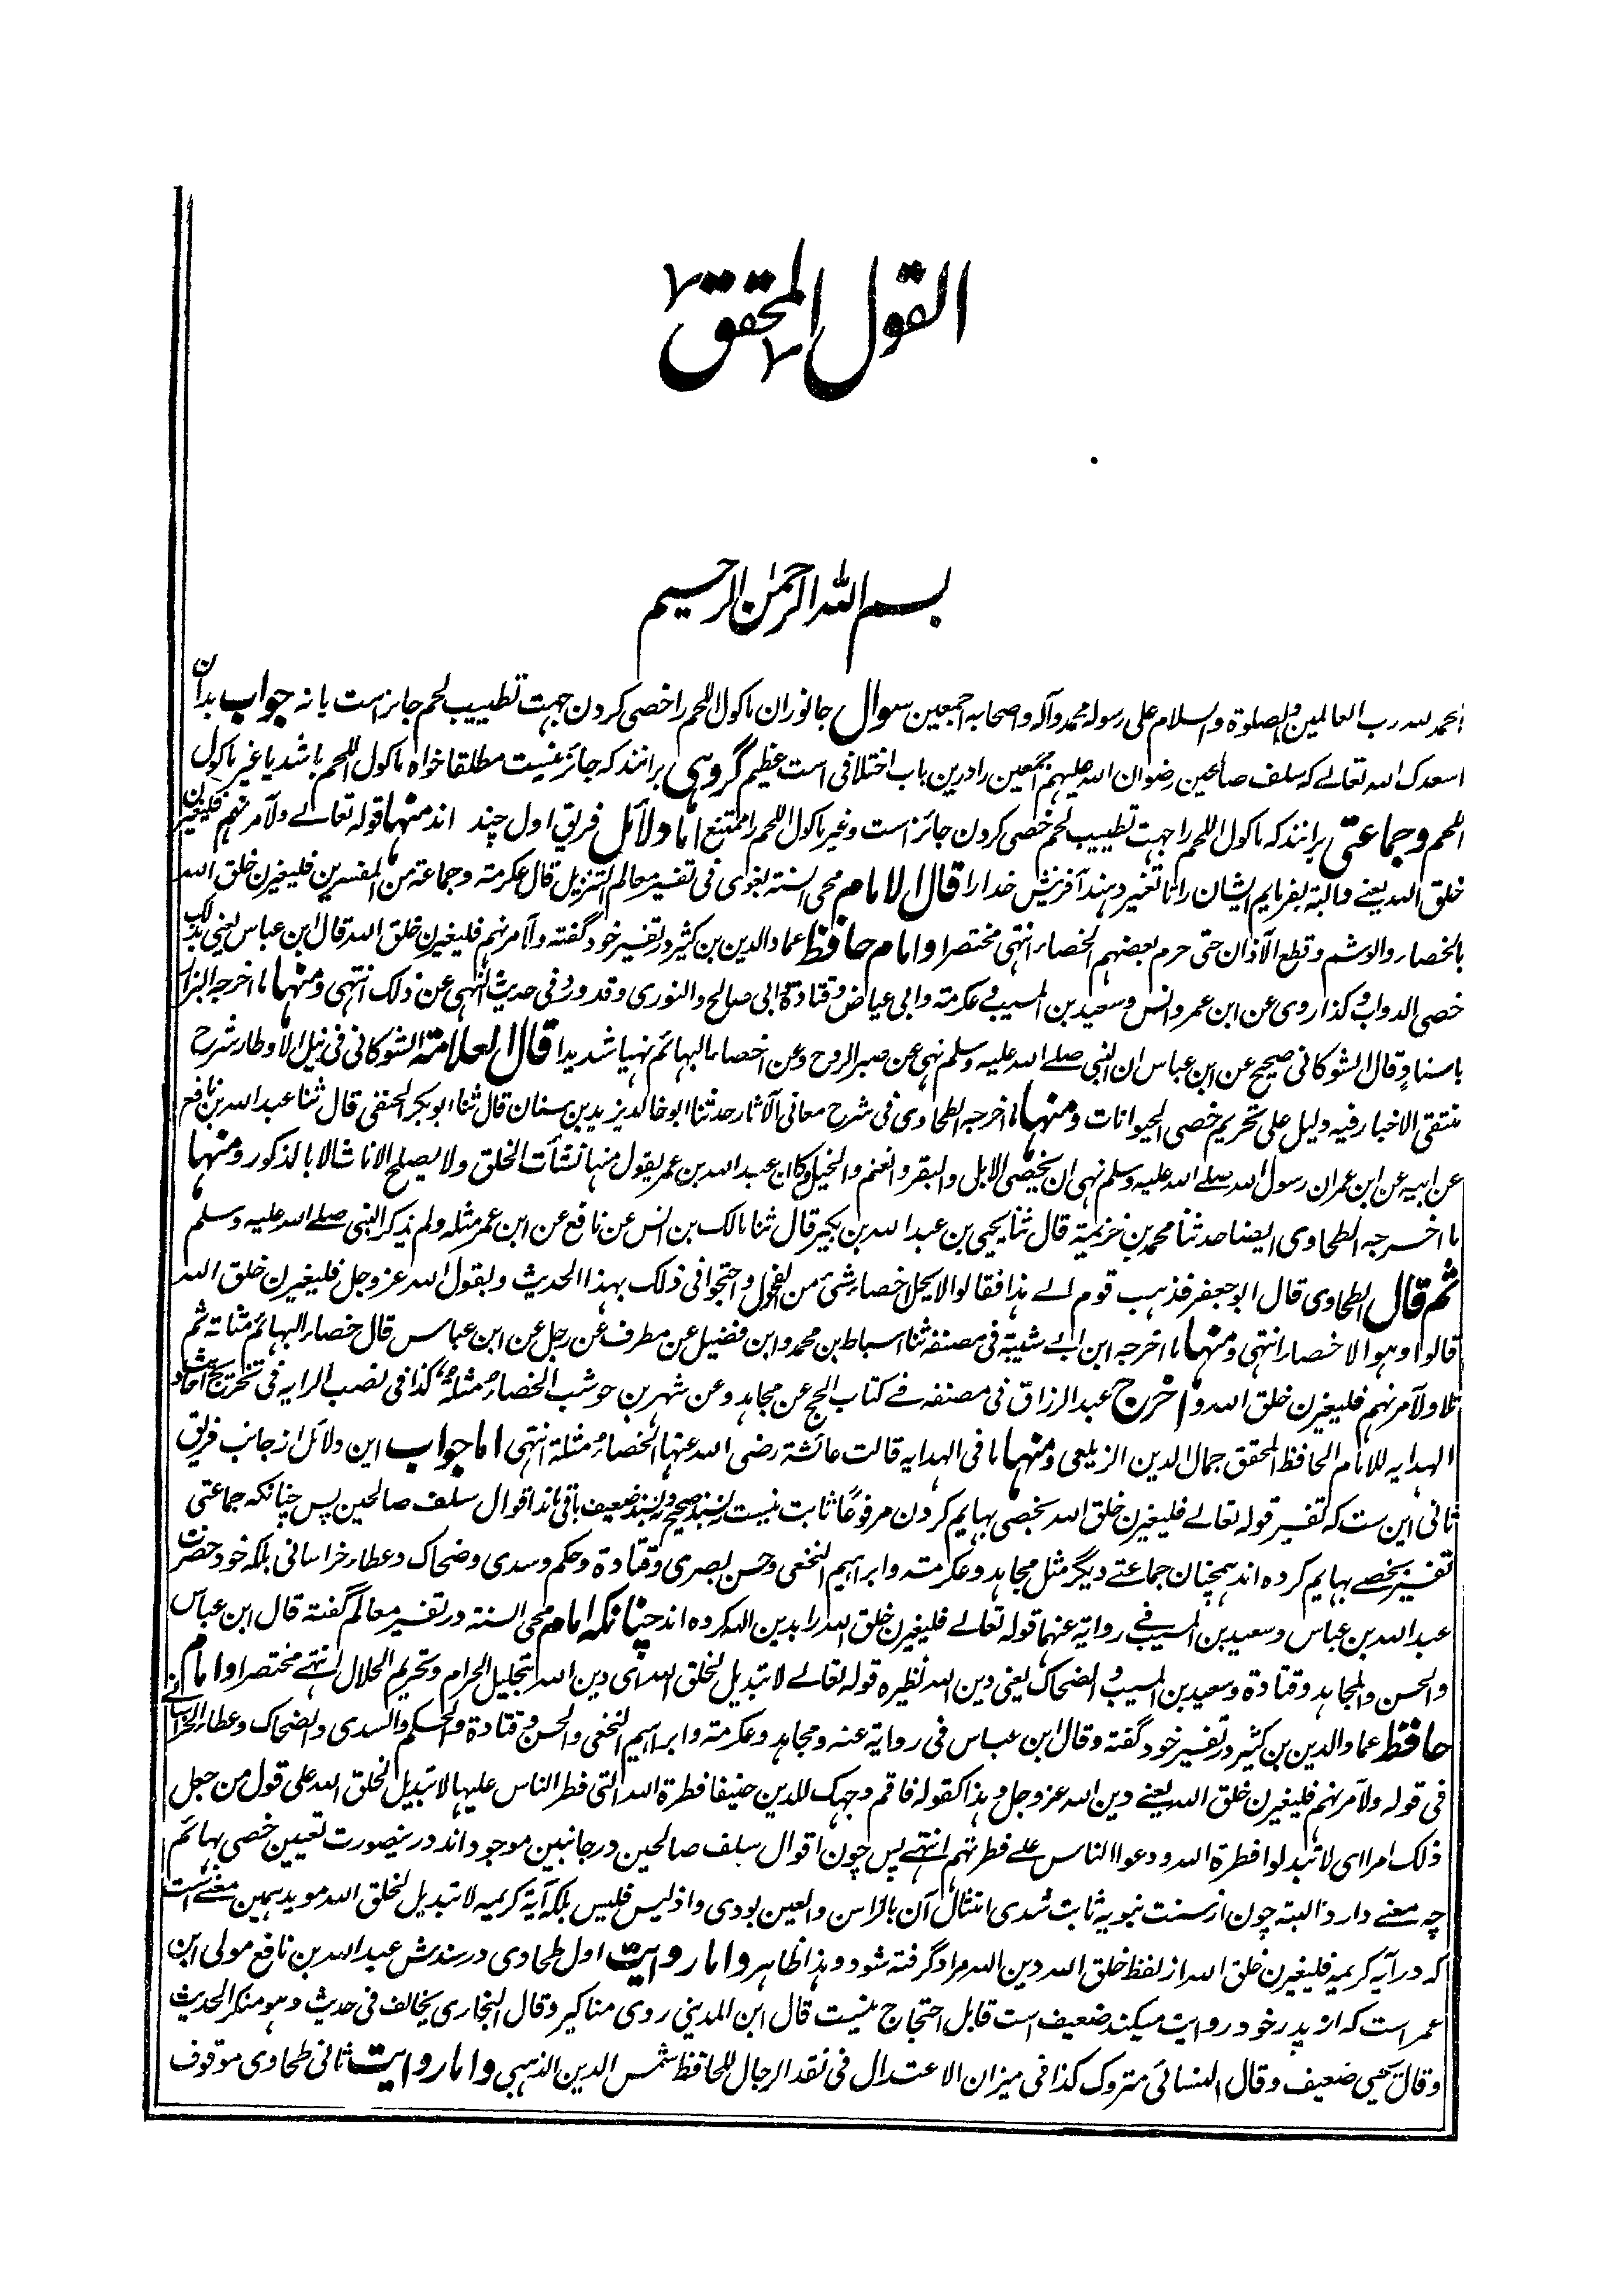 القول المحقق
بسم الله الرحمن الرحیم
الحمد لله رب العالمین والصلوة والسلام علی رسوله محمد وآله واصحابه اجمعین سوال جانوران ماکول اللحم را خصی کردن جهت تطییب لحم جائز است یا نه جواب بدان
اسعدک الله تعالے که سلف صالحین رضوان الله علیهم اجمعین را درین باب اختلافی است عظیم گروهی برانند که جائز نیست مطلقا خواه ماکول اللحم باشد یا غیر ماکول
اللحم و جماعتی برانند که ماکول اللحم را جهت تطییب لحم خصی کردن جائز است وغیر ماکول اللحم را ممتنع اما دلائل فریق اول چند اند منها قوله تعالے ولآمرنهم فلیغیرن
خلق الله یعنے والبته بفرمایم ایشان را تا تغیر دهند آفرینش خدا را قال الامام محی السنة بغوی فی تفسیر معالم التنزیل قال عکرمة وجماعة من المفسرین فلیغیرن خلق الله
بالخصاء والوشم وقطع الآذان حتی حرم بعضهم الخصاء انتهی مختصرا وامام حافظ عماد الدین بن کثیر در تفسیر خود گفته ولآمرنهم فلیغیرن خلق الله قال ابن عباس یعنی بذلک
خصی الدواب وکذا روی عن ابن عمر وانس وسعید بن المسیب وعکرمة وابی عیاض وقتادة وابی صالح والثوری وقد ورد فی حدیث النهی عن ذلک انتهی ومنها ما اخرجه البزار
باسناد قال الشوکانی صحیح عن ابن عباس ان النبی صلے الله علیه وسلم نهی عن صبر الروح وعن اخصاء البهائم نهیا شدیدا قال العلامة الشوکانی فی نیل الاوطار شرح
منتقی الاخبار فیه دلیل علی تحریم خصی الحیوانات ومنها ما اخرجه الطحاوی فی شرح معانی الآثار حدثنا ابو خالد یزید بن سنان قال ثنا ابو بکر الحنفی قال ثنا عبد الله بن نافع
عن ابیه عن ابن عمر ان رسول الله صلے الله علیه وسلم نهی ان یخصی الابل والبقر والغنم والخیل وکان عبد الله بن عمر یقول منها نشأت الخلق ولا یصلح الاناث الا بالذکور ومنها
ما اخرجه الطحاوی ایضا حدثنا محمد بن خزیمة قال ثنا یحیی بن عبد الله بن بکیر قال ثنا مالک بن انس عن نافع عن ابن عمر مثله ولم یذکر النبی صلے الله علیه وسلم
ثم قال الطحاوی قال ابو جعفر فذهب قوم الے هذا فقالوا لا یحل اخصاء شئ من الفحول واحتجوا فی ذلک بهذا الحدیث وبقول الله عز وجل فلیغیرن خلق الله
قالوا وهو الاخصاء انتهی ومنها ما اخرجه ابن ابے شیبة فی مصنفه ثنا اسباط بن محمد وابن فضیل عن مطرف عن رجل عن ابن عباس قال خصاء البهائم مثلة ثم
تلا ولآمرنهم فلیغیرن خلق الله واخرج عبد الرزاق فی مصنفه فے کتاب الحج عن مجاهد وعن شهر بن حوشب الخصاء مثلة کذا فی نصب الرایه فی تخریج احادیث
الهدایه للامام الحافظ المحقق جمال الدین الزیلعی ومنها ما فی الهدایه قالت عائشة رضی الله عنها الخصاء مثلة انتهی اما جواب این دلائل از جانب فریق
ثانی این ست که تفسیر قوله تعالے فلیغیرن خلق الله بخصی بهایم کردن مرفوعًا ثابت نیست نه بسند صحیح و نه بسند ضعیف باقی ماند اقوال سلف صالحین پس چنانکه جماعتی
تفسیر بخصے بهایم کرده اند همچنان جماعتے دیگر مثل مجاهد و عکرمة وابراهیم النخعی وحسن بصری وقتادة وحکم وسدی وضحاک وعطاء خراسانی بلکه خود حضرت
عبد الله بن عباس وسعید بن المسیب فے روایة عنهما قوله تعالے فلیغیرن خلق الله را بدین الله کرده اند چنانکه امام محی السنة در تفسیر معالم گفته قال ابن عباس
والحسن والمجاهد وقتادة وسعید بن المسیب والضحاک یعنی دین الله نظیره قوله تعالے لا تبدیل لخلق الله ای دین الله بتحلیل الحرام وتحریم الحلال انتهے مختصرا وامام
حافظ عماد الدین بن کثیر در تفسیر خود گفته وقال ابن عباس فی روایة عنه ومجاهد وعکرمة وابراهیم النخعی والحسن وقتادة والحکم والسدی والضحاک وعطاء الخراسانے
فی قوله ولآمرنهم فلیغیرن خلق الله یعنے دین الله عز وجل وهذا کقوله فاقم وجهک للدین حنیفا فطرة الله التی فطر الناس علیها لا تبدیل لخلق الله علی قول من جعل
ذلک امرا ای لا تبدلوا فطرة الله ودعوا الناس علے فطرتهم انتهے پس چون اقوال سلف صالحین در جانبین موجود اند درینصورت تعیین خصی بهائم
چه معنے دارد البته چون از سنت نبویه ثابت شدی امتثال آن بالراس والعین بودی واذ لیس فلیس بلکه آیة کریمه لا تبدیل لخلق الله موید همین معنے است
که در آیه کریمه فلیغیرن خلق الله از لفظ خلق الله دین الله مراد گرفته شود و هذا ظاهر واما روایت اول طحاوی در سندش عبد الله بن نافع مولی ابن
عمر است که از پدر خود روایت میکند ضعیف است قابل احتجاج نیست قال ابن المدینی روی مناکیر وقال البخاری یخالف فی حدیث وهو منکر الحدیث
وقال یحیی ضعیف وقال النسائی متروک کذا فی میزان الاعتدال فی نقد الرجال للحافظ شمس الدین الذهبی واما روایت ثانی طحاوی موقوف